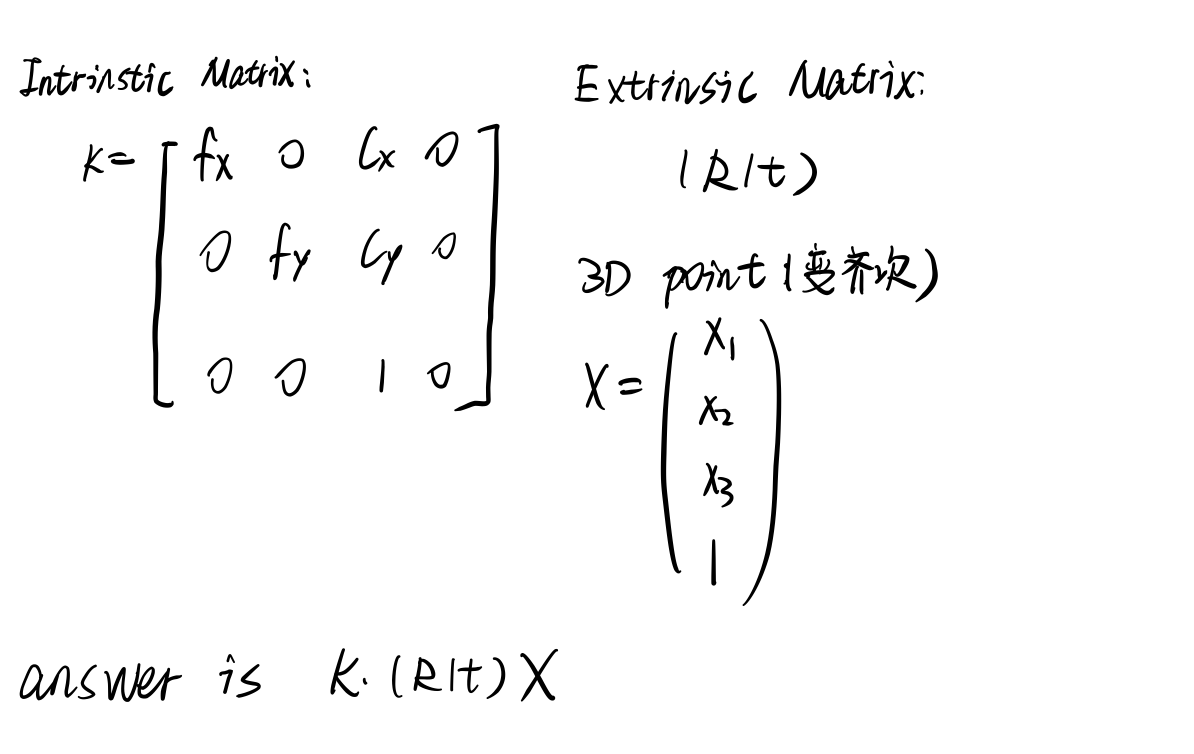 Intrinstic Matrix:
K= [ fx 0 Cx 0
0 fy Cy 0
0 0 1 0 ]
Extrinsic Matrix:
(R|t)
3D point (变齐次)
X= ( x1
x2
x3
1 )
answer is K·(R|t)X